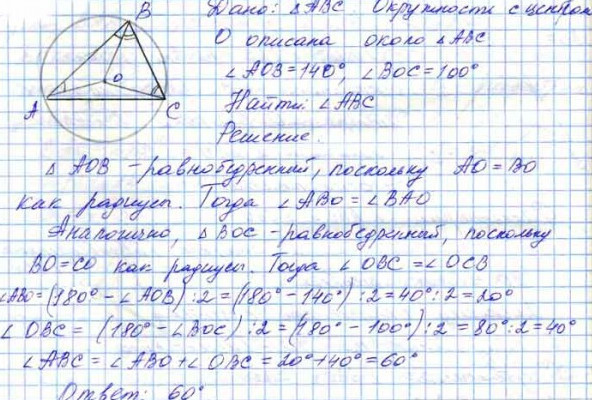 B
Дано: △ABC. Окружность с центром
O описана около △ABC
∠AOB=140°, ∠BOC=100°
Найти: ∠ABC
Решение.
O
A
C
△ AOB - равнобедренный, поскольку AO = BO
как радиусы. Тогда ∠ABO = ∠BAO
Аналогично, △ BOC - равнобедренный, поскольку
BO=CO как радиусы. Тогда ∠ OBC = ∠OCB
∠ABO = (180° - ∠AOB) : 2 = (180° - 140°) : 2 = 40° : 2 = 20°
∠ OBC = (180° - ∠BOC) : 2 = (180° - 100°) : 2 = 80° : 2 = 40°
∠ABC = ∠ABO + ∠ OBC = 20° + 40° = 60°
Ответ: 60°